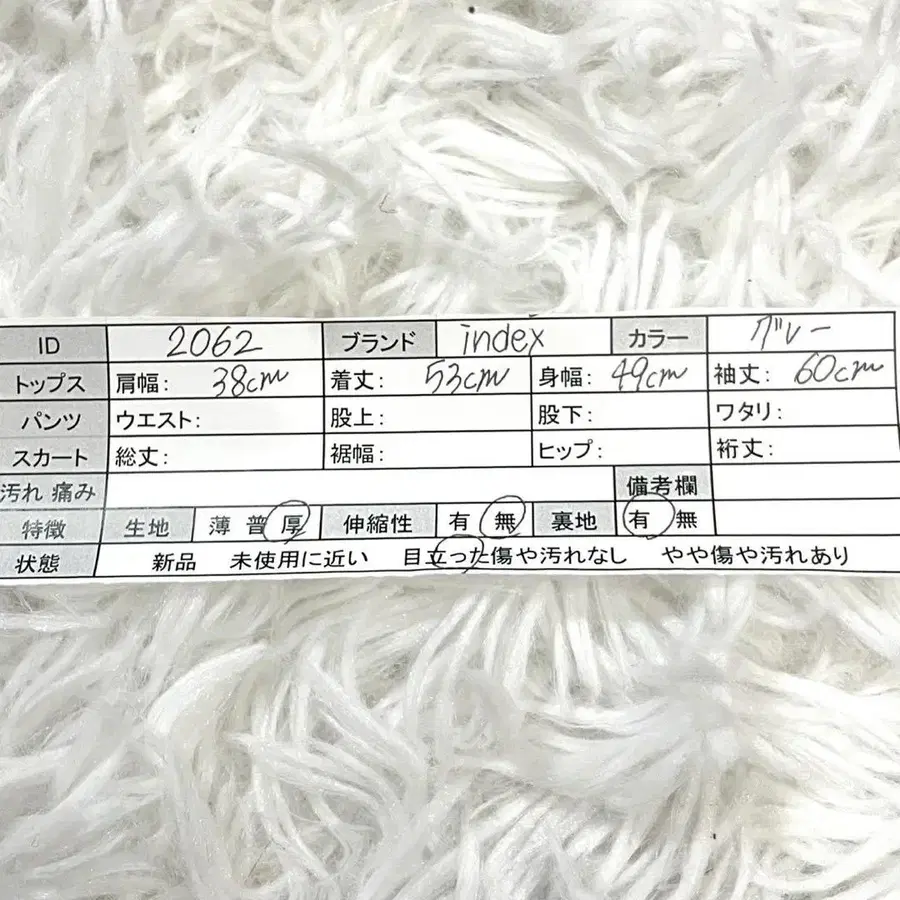 ID 2062 ブランド index カラー グレー
トップス 肩幅: 38cm 着丈: 53cm 身幅: 49cm 袖丈: 60cm
パンツ ウエスト: 股上: 股下: ワタリ:
スカート 総丈: 裾幅: ヒップ: 裄丈:
汚れ 痛み 備考欄
特徴 生地 薄 普 厚 伸縮性 有 無 裏地 有 無
状態 新品 未使用に近い 目立った傷や汚れなし やや傷や汚れあり